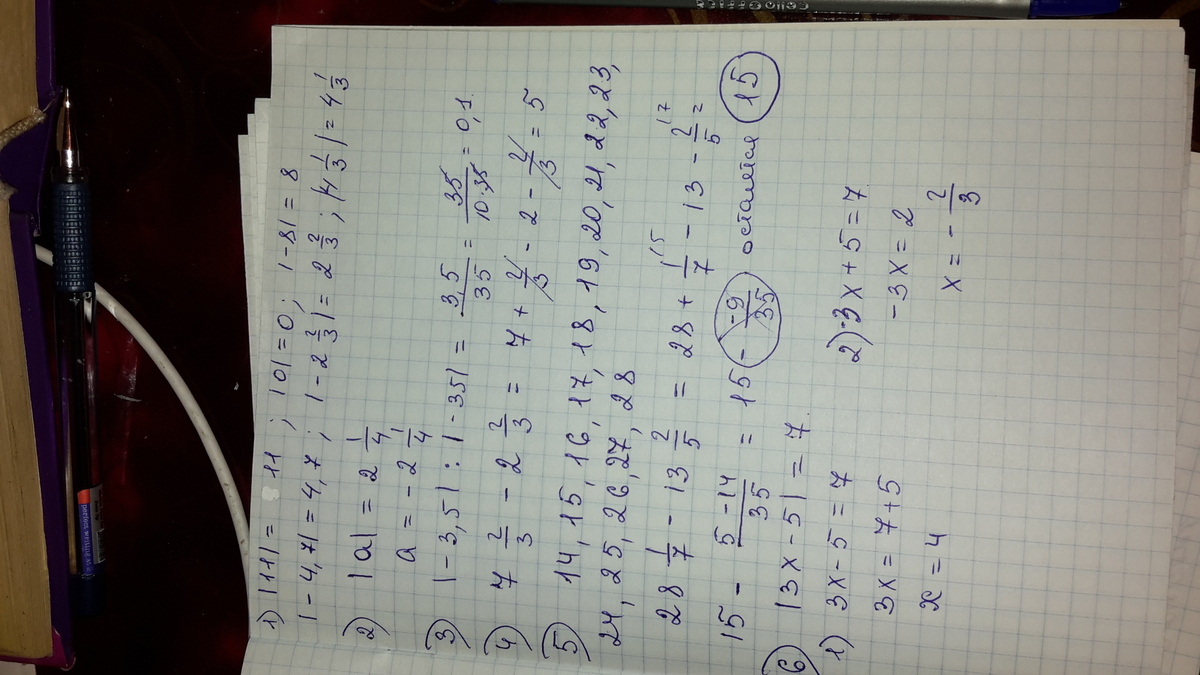 1) |11| = 11 ; |0| = 0 ; |-8| = 8
|-4,7| = 4,7 ; |-2 2/3| = 2 2/3 ; |4 1/3| = 4 1/3
2) |a| = 2 1/4
a = -2 1/4
3) |-3,5| : |-35| = 3,5/35 = 35/10·35 = 0,1.
4) 7 2/3 - 2 2/3 = 7 + 2/3 - 2 - 2/3 = 5
5) 14, 15, 16, 17, 18, 19, 20, 21, 22, 23,
24, 25, 26, 27, 28
28 1/7 - 13 2/5 = 28 + 1/7 - 13 - 2/5 =
15 - 5-14/35 = 15 - -9/35 остаётся 15
6) |3x - 5| = 7
1) 3x - 5 = 7
3x = 7 + 5
x = 4
2) -3x + 5 = 7
-3x = 2
x = - 2/3